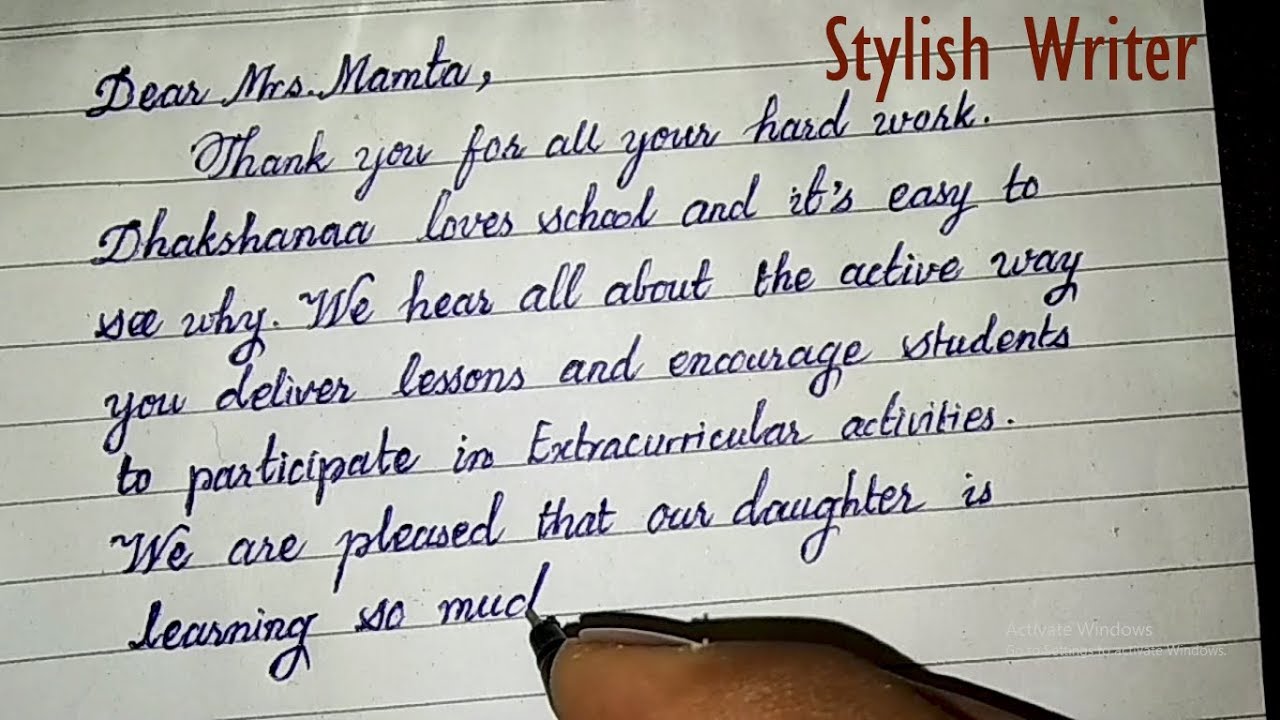 Stylish Writer
Dear Mrs. Mamta,
Thank you for all your hard work.
Dhakshanaa loves school and it's easy to
see why. We hear all about the active way
you deliver lessons and encourage students
to participate in Extracurricular activities.
We are pleased that our daughter is
learning so muc
Activate Windows
Go to Settings to activate Windows.